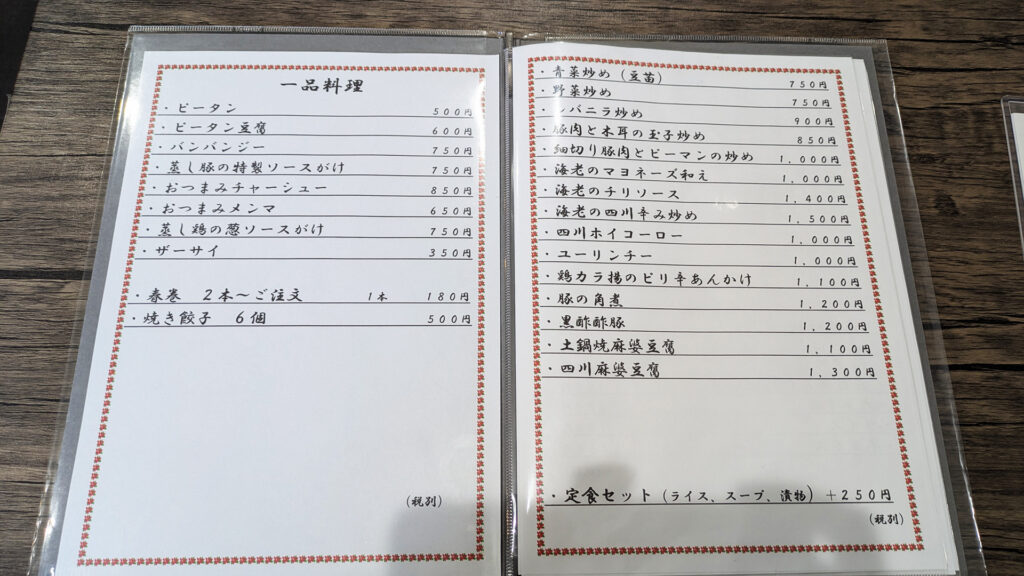 一品料理
・ピータン 500円
・ピータン豆腐 600円
・バンバンジー 750円
・蒸し豚の特製ソースがけ 750円
・おつまみチャーシュー 850円
・おつまみメンマ 650円
・蒸し鶏の葱ソースがけ 750円
・ザーサイ 350円
・春巻 2本〜ご注文 1本 180円
・焼き餃子 6個 500円
(税別)
・青菜炒め(豆苗) 750円
・野菜炒め 750円
・レバニラ炒め 900円
・豚肉と木耳の玉子炒め 850円
・細切り豚肉とピーマンの炒め 1,000円
・海老のマヨネーズ和え 1,000円
・海老のチリソース 1,400円
・海老の四川辛み炒め 1,500円
・四川ホイコーロー 1,000円
・ユーリンチー 1,000円
・鶏カラ揚のピリ辛あんかけ 1,100円
・豚の角煮 1,200円
・黒酢酢豚 1,200円
・土鍋焼麻婆豆腐 1,100円
・四川麻婆豆腐 1,300円
・定食セット(ライス、スープ、漬物) +250円
(税別)